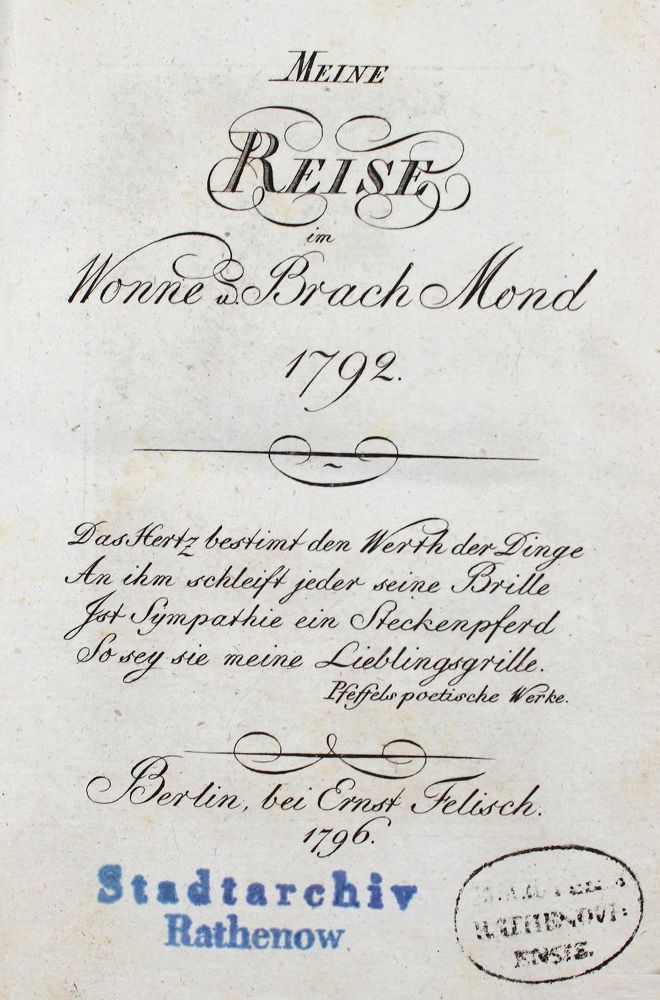 MEINE
REISE
im
Wonne u. Brach Mond
1792.
Das Hertz bestimt den Werth der Dinge
An ihm schleift jeder seine Brille
Jst Sympathie ein Steckenpferd
So sey sie meine Lieblingsgrille.
Pfeffels poetische Werke.
Berlin, bei Ernst Felisch.
1796.
Stadtarchiv
Rathenow
RATHENOVI-
ENSIS.